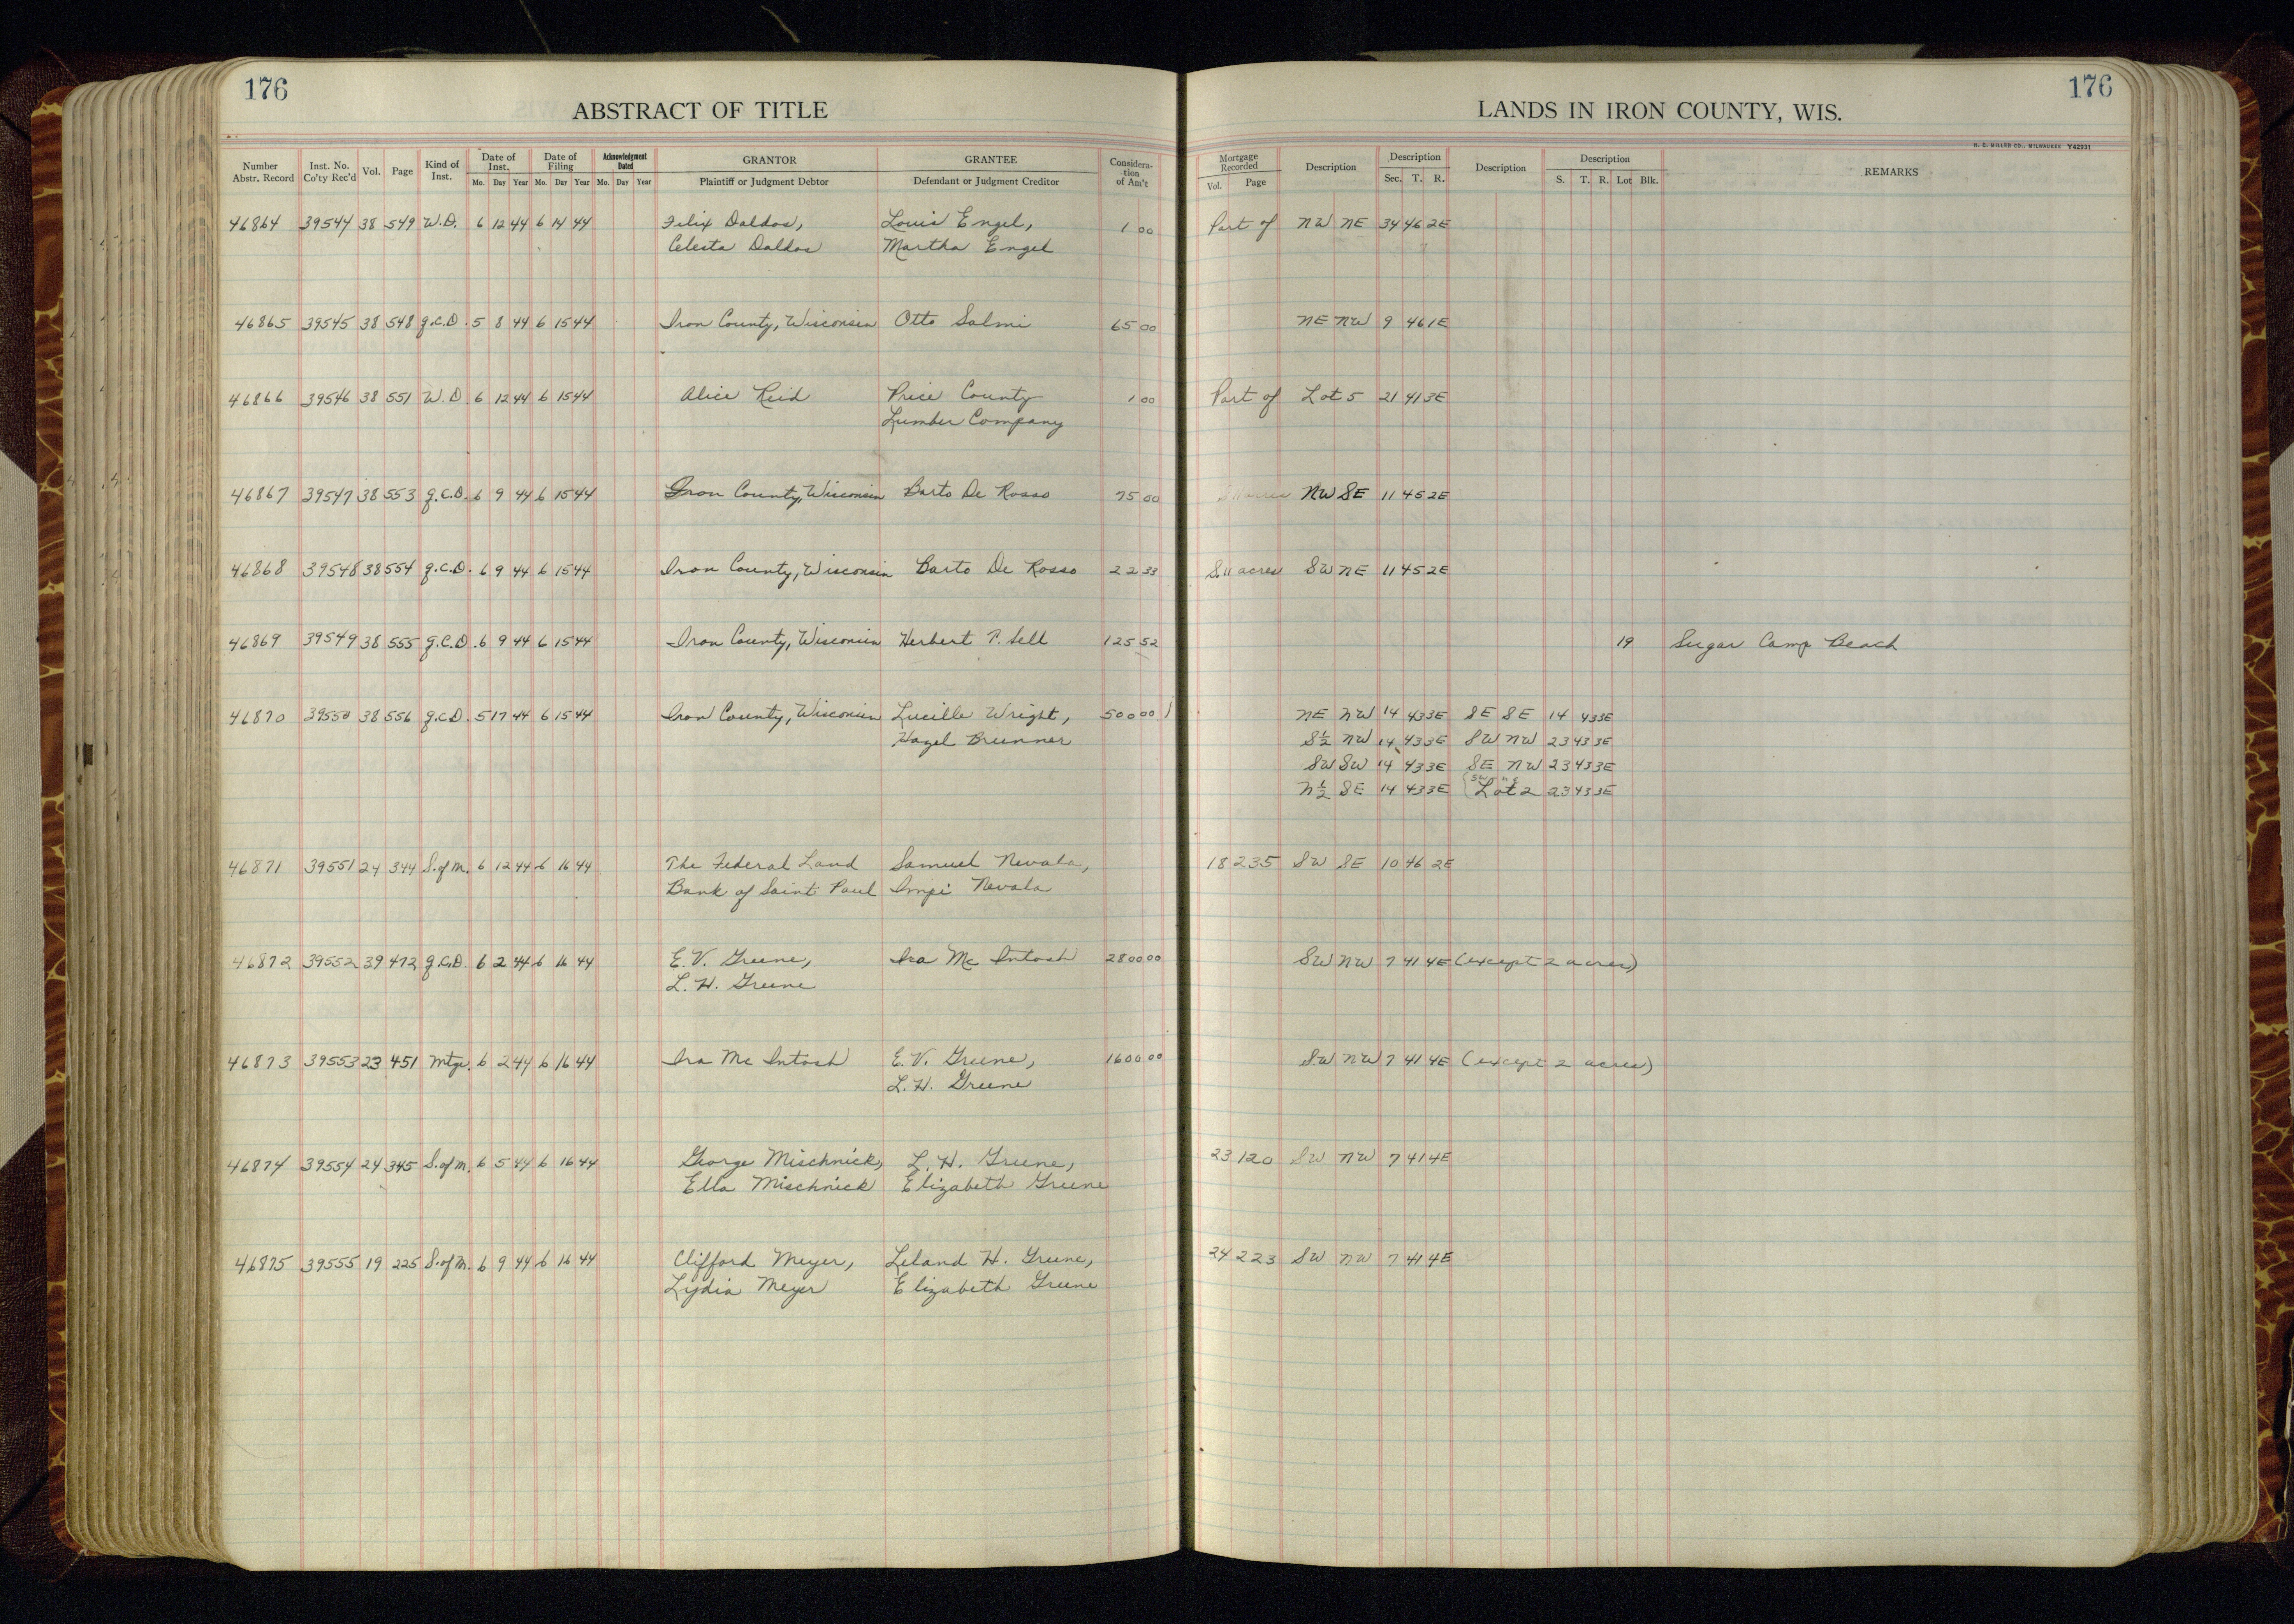 176
ABSTRACT OF TITLE
LANDS IN IRON COUNTY, WIS.
176
H. C. MILLER CO., MILWAUKEE Y42931
Number Abstr. Record | Inst. No. Co'ty Rec'd | Vol. | Page | Kind of Inst. | Date of Inst. Mo. Day Year | Date of Filing Mo. Day Year | Acknowledgment Dated Mo. Day Year | GRANTOR Plaintiff or Judgment Debtor | GRANTEE Defendant or Judgment Creditor | Considera-tion of Am't | Mortgage Recorded Vol. Page | Description | Description Sec. T. R. | Description | Description S. T. R. Lot Blk. | REMARKS
46864 39544 38 549 W.D. 6 12 44 6 14 44 Felix Daldos, Louis Engel, 1 00 Part of NW NE 34 46 2E
Celesta Daldos Martha Engel
46865 39545 38 548 q.C.D. 5 8 44 6 15 44 Iron County, Wisconsin Otto Salmi 65 00 NE NW 9 46 1E
46866 39546 38 551 W.D. 6 12 44 6 15 44 Alice Reid Price County 1 00 Part of Lot 5 21 41 3E
Lumber Company
46867 39547 38 553 q.C.D. 6 9 44 6 15 44 Iron County, Wisconsin Barto De Rosso 75 00 NW SE 11 45 2E
46868 39548 38 554 q.C.D. 6 9 44 6 15 44 Iron County, Wisconsin Barto De Rosso 22 33 S. 11 acres SW NE 11 45 2E
46869 39549 38 555 q.C.D. 6 9 44 6 15 44 Iron County, Wisconsin Herbert P. Sell 125 52 19 Sugar Camp Beach
46870 39550 38 556 q.C.D. 5 17 44 6 15 44 Iron County, Wisconsin Lucille Wright, 500 00 NE NW 14 43 3E SE SE 14 43 3E
Hazel Brunner S½ NW 14 43 3E SW NW 23 43 3E
SW SW 14 43 3E SE NW 23 43 3E
N½ SE 14 43 3E Lot 2 23 43 3E
46871 39551 24 344 S.of M. 6 12 44 6 16 44 The Federal Land Samuel Nevala, 18 235 SW SE 10 46 2E
Bank of Saint Paul Impi Nevala
46872 39552 39 472 q.C.D. 6 2 44 6 16 44 E. V. Greene, Ira Mc Intosh 2800 00 SW NW 7 41 4E (except 2 acres)
L. H. Greene
46873 39553 23 451 Mtge. 6 2 44 6 16 44 Ira Mc Intosh E. V. Greene, 1600 00 SW NW 7 41 4E (except 2 acres)
L. H. Greene
46874 39554 24 345 S.of M. 6 5 44 6 16 44 George Mischnick, L. H. Greene, 23 120 SW NW 7 41 4E
Ella Mischnick Elizabeth Greene
46875 39555 19 225 S.of M. 6 9 44 6 16 44 Clifford Meyer, Leland H. Greene, 24 223 SW NW 7 41 4E
Lydia Meyer Elizabeth Greene